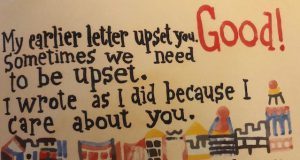 My earlier letter upset you. Good!
Sometimes we need
to be upset.
I wrote as I did because I
care about you.